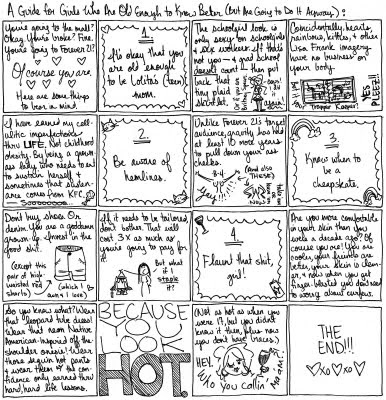 A Guide for Girls Who Are Old Enough to Know Better (But Are Going to Do It Anyway):
You're going to the mall?
Okay. Yours broke? Fine.
You're going to Forever 21?
Of course you are.
Here are some things
to bear in mind.
1
It's okay that you
are old enough
to be Lolita's (teen)
mom.
The schoolgirl look is
only sexy on schoolgirls
& sex workers. If that's
not you — & grad school
doesn't count — then put
back that
tiny plaid
skirtlet.
Coincidentally, hearts,
rainbows, kitties, & other
Lisa Frank imagery
have no business on
your body.
Trapper Keeper?
YES
PLEEZ!!
I have earned my cell-
ulitic imperfections
thru LIFE. Not childhood
obesity. By being a grown-
ass lady who needs to eat
to sustain herself &
sometimes that susten-
ance comes from KFC.
Sooooooooo...
2
Be aware of
hemlines.
Unlike Forever 21's target
audience, gravity has had
at least 10 more years
to pull down your ass
cheeks.
(And also
THESE)
3
Know when to
be a
cheapskate.
Don't buy shoes. Or
denim. You are a goddamn
grown up. Invest in the
good shit.
(except this
pair of high-
waisted red
shorts)
(which I
own & love)
If it needs to be tailored,
don't bother. That will
cost 3x as much as
you're going to pay for
it.
But what
if I
stole
it?
4
Flaunt that shit,
girl!
Are you more comfortable
in your skin than you
were a decade ago? Of
course you are! You are
cooler, your friends are
better, your skin is clear-
er, & now when you get
finger-blasted you don't need
to worry about curfew.
So you know what? Wear
that leopard tube dress!
Wear that neon Native
American-inspired off the
shoulder onesie! Wear
those sequin hot pants
& wear them w/ the con-
fidence only earned thru
hard, hard life lessons.
BECAUSE
YOU
LOOK
HOT.
(Not as hot as when you
were 17, but you didn't
know it then, plus now
you don't have braces.)
HEY,
who you callin'
THE
END!!!
♡xo♡xo♡